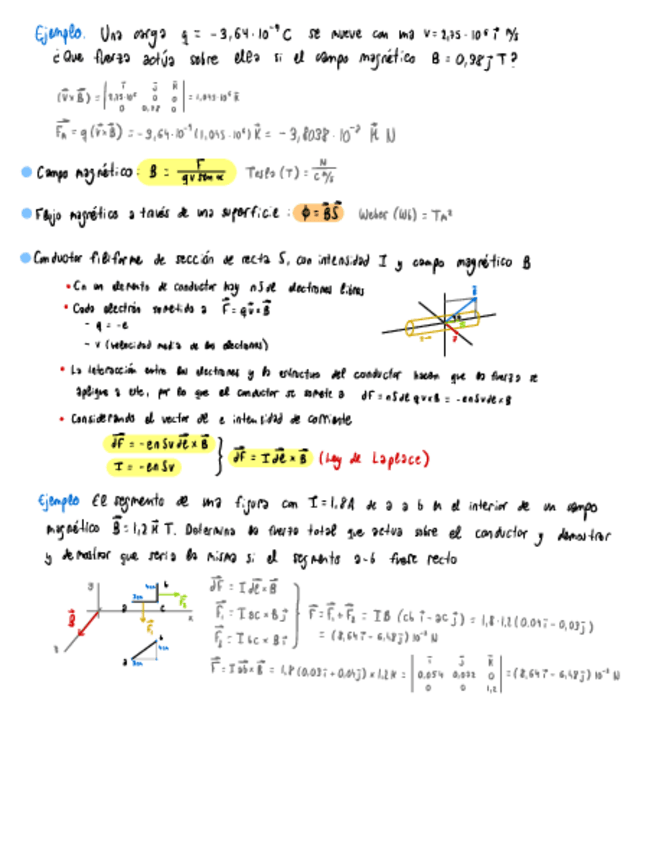 Ejemplo. Una carga q = -3,64·10⁻⁹ C se mueve con una v = 2,75·10⁶ i⃗ m/s
¿Que fuerza actúa sobre ella si el campo magnético B = 0,38 j⃗ T?
(v⃗×B⃗) = | i⃗ j⃗ k⃗ | 2,75·10⁶ 0 0 | 0 0,38 0 | = 1,045·10⁶ k⃗
F⃗m = q(v⃗×B⃗) = -3,64·10⁻⁹ (1,045·10⁶) k⃗ = -3,8038·10⁻³ k⃗ N
Campo magnético: B = F / qv sen α Tesla (T) = N / C m/s
Flujo magnético a través de una superficie: ϕ = B⃗S⃗ Weber (Wb) = Tm²
Conductor filiforme de sección de recta S, con intensidad I y campo magnético B
• En un elemento de conductor hay nSdl electrones libres
• Cada electrón sometido a F⃗ = qv⃗×B⃗
- q = -e
- v (velocidad media de los electrones)
• La interacción entre los electrones y la estructura del conductor hacen que la fuerza se
aplique a este, por lo que el conductor se somete a dF = nSdl qv×B = -enSvdl×B
• Considerando el vector dl e intensidad de corriente
dF⃗ = -enSv dl⃗×B⃗
I = -enSv
dF⃗ = I dl⃗×B⃗ (Ley de Laplace)
Ejemplo El segmento de una figura con I = 1,8A de a a b en el interior de un campo
magnético B⃗ = 1,2 k⃗ T. Determina la fuerza total que actua sobre el conductor y demostrar
y demostrar que seria la misma si el segmento a-b fuese recto
dF⃗ = I dl⃗×B⃗
F⃗₁ = I ac × B j⃗
F⃗₂ = I bc × B i⃗
F⃗ = F⃗₁ + F⃗₂ = IB (cb i⃗ - ac j⃗) = 1,8·1,2 (0,04 i⃗ - 0,03 j⃗)
= (8,64 i⃗ - 6,48 j⃗) 10⁻² N
F⃗ = I ab⃗×B⃗ = 1,8 (0,03 i⃗ + 0,04 j⃗) × 1,2 k⃗ = | i⃗ j⃗ k⃗ | 0,054 0,072 0 | 0 0 1,2 | = (8,64 i⃗ - 6,48 j⃗) 10⁻² N